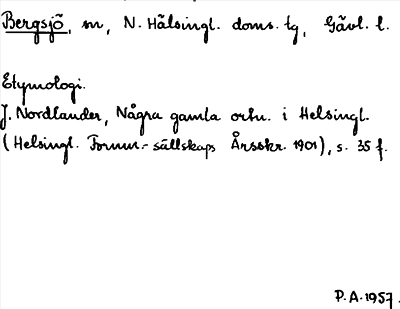 Bergsjö, sn, N. Hälsingl. doms. tg, Gävl. l.
Etymologi.
J. Nordlander, Några gamla ortn. i Helsingl.
(Helsingl. Fornm.-sällskaps Årsskr. 1901), s. 35 f.
P.A. 1957.